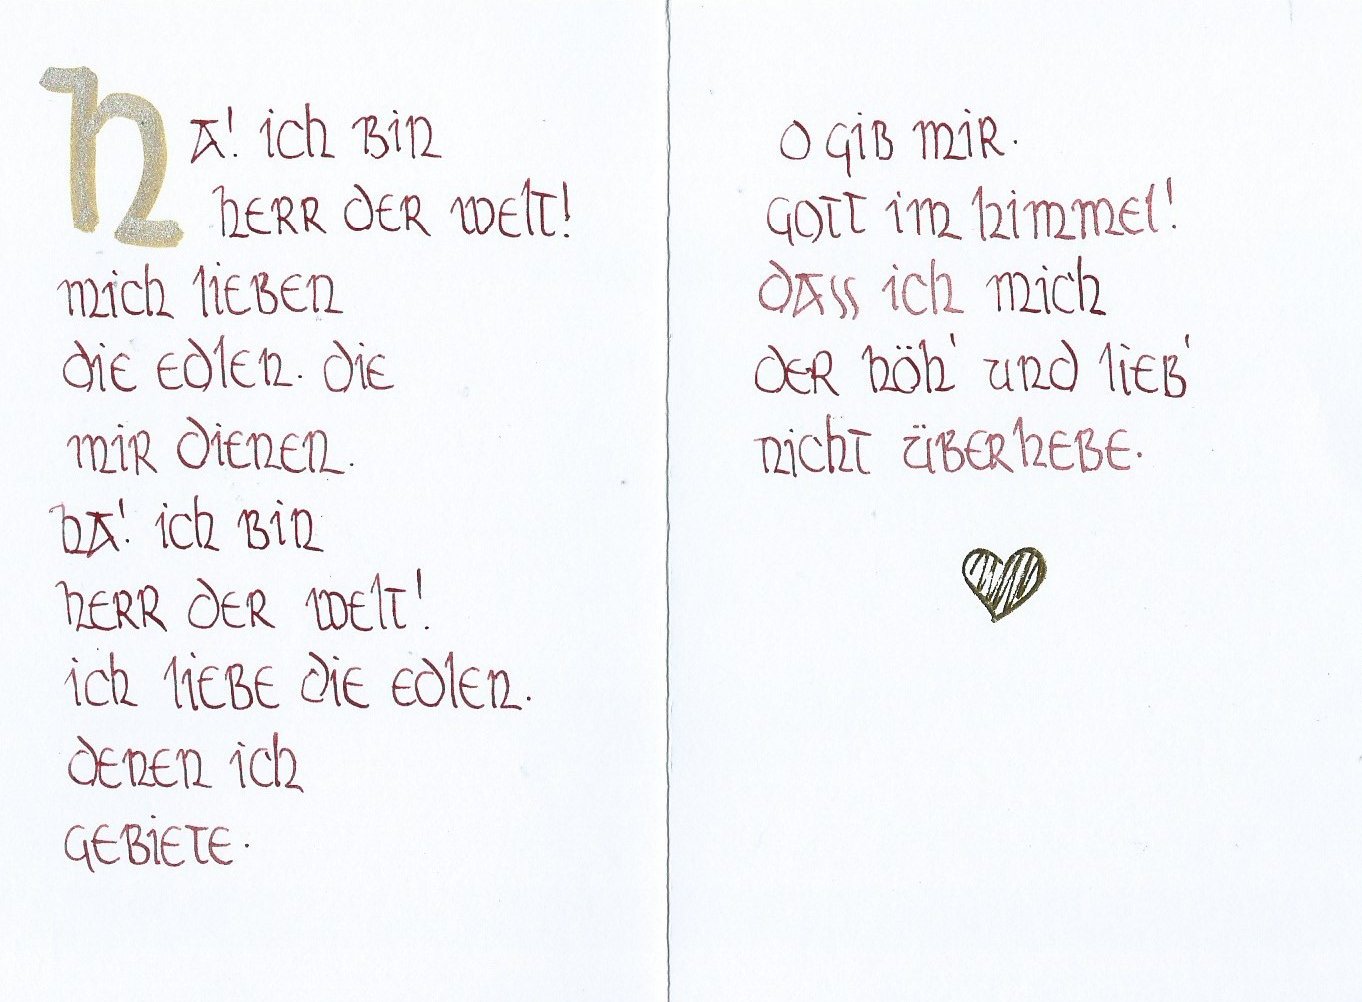 Ha! ich bin
Herr der Welt!
mich lieben
die Edlen. die
mir dienen.
Ha! ich bin
Herr der Welt!
ich liebe die Edlen.
denen ich
gebiete.
O gib mir.
Gott im Himmel!
dass ich mich
der Höh' und Lieb'
nicht überhebe.